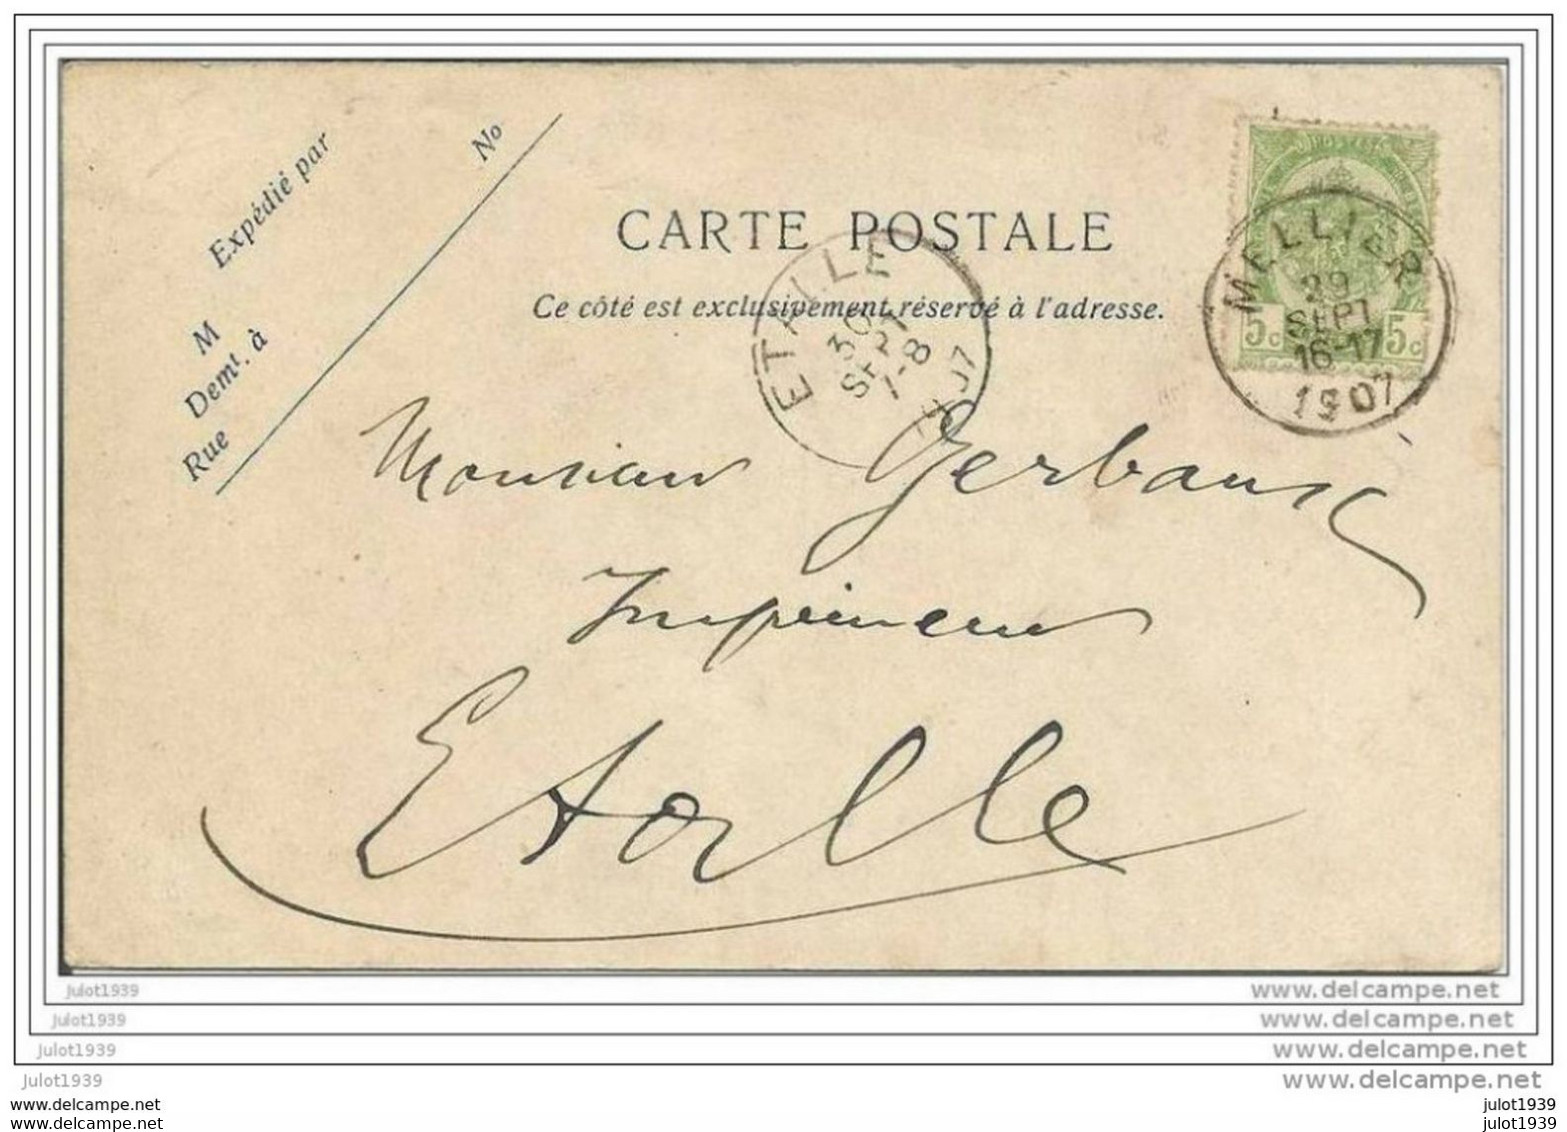 Expédié par
No
M
Demt. à
Rue
CARTE POSTALE
Ce côté est exclusivement réservé à l'adresse.
POSTES
5c 5c
MELLIER
29
SEPT
16-17
1907
ETALLE
30
SEPT
7-8
1907
Monsieur Gerbaux
Imprimeur
Etalle
julot1939
www.delcampe.net
julot1939
www.delcampe.net
julot1939
www.delcampe.net
julot1939
www.delcampe.net
www.delcampe.net
julot1939
www.delcampe.net
julot1939